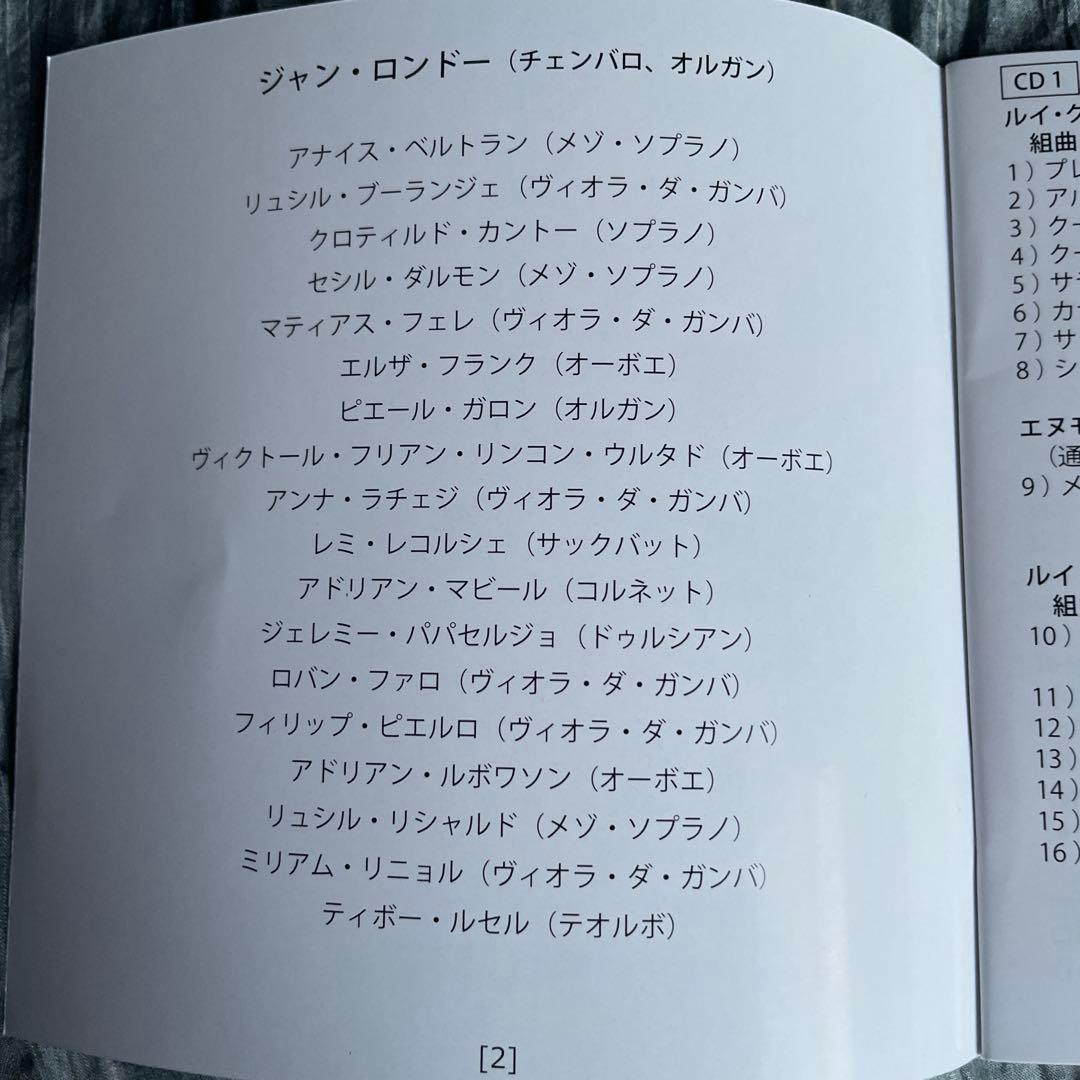 ジャン・ロンドー（チェンバロ、オルガン）
アナイス・ベルトラン（メゾ・ソプラノ）
リュシル・ブーランジェ（ヴィオラ・ダ・ガンバ）
クロティルド・カントー（ソプラノ）
セシル・ダルモン（メゾ・ソプラノ）
マティアス・フェレ（ヴィオラ・ダ・ガンバ）
エルザ・フランク（オーボエ）
ピエール・ガロン（オルガン）
ヴィクトール・フリアン・リンコン・ウルタド（オーボエ）
アンナ・ラチェジ（ヴィオラ・ダ・ガンバ）
レミ・レコルシェ（サックバット）
アドリアン・マビール（コルネット）
ジェレミー・パパセルジョ（ドゥルシアン）
ロバン・ファロ（ヴィオラ・ダ・ガンバ）
フィリップ・ピエルロ（ヴィオラ・ダ・ガンバ）
アドリアン・ルボワソン（オーボエ）
リュシル・リシャルド（メゾ・ソプラノ）
ミリアム・リニョル（ヴィオラ・ダ・ガンバ）
ティボー・ルセル（テオルボ）
[2]
CD 1
ルイ・ク
組曲
1）プレ
2）アル
3）クー
4）クー
5）サ
6）カ
7）サ
8）シ
エヌモ
（通
9）メ
ルイ
組
10）
11）
12）
13）
14）
15）
16）